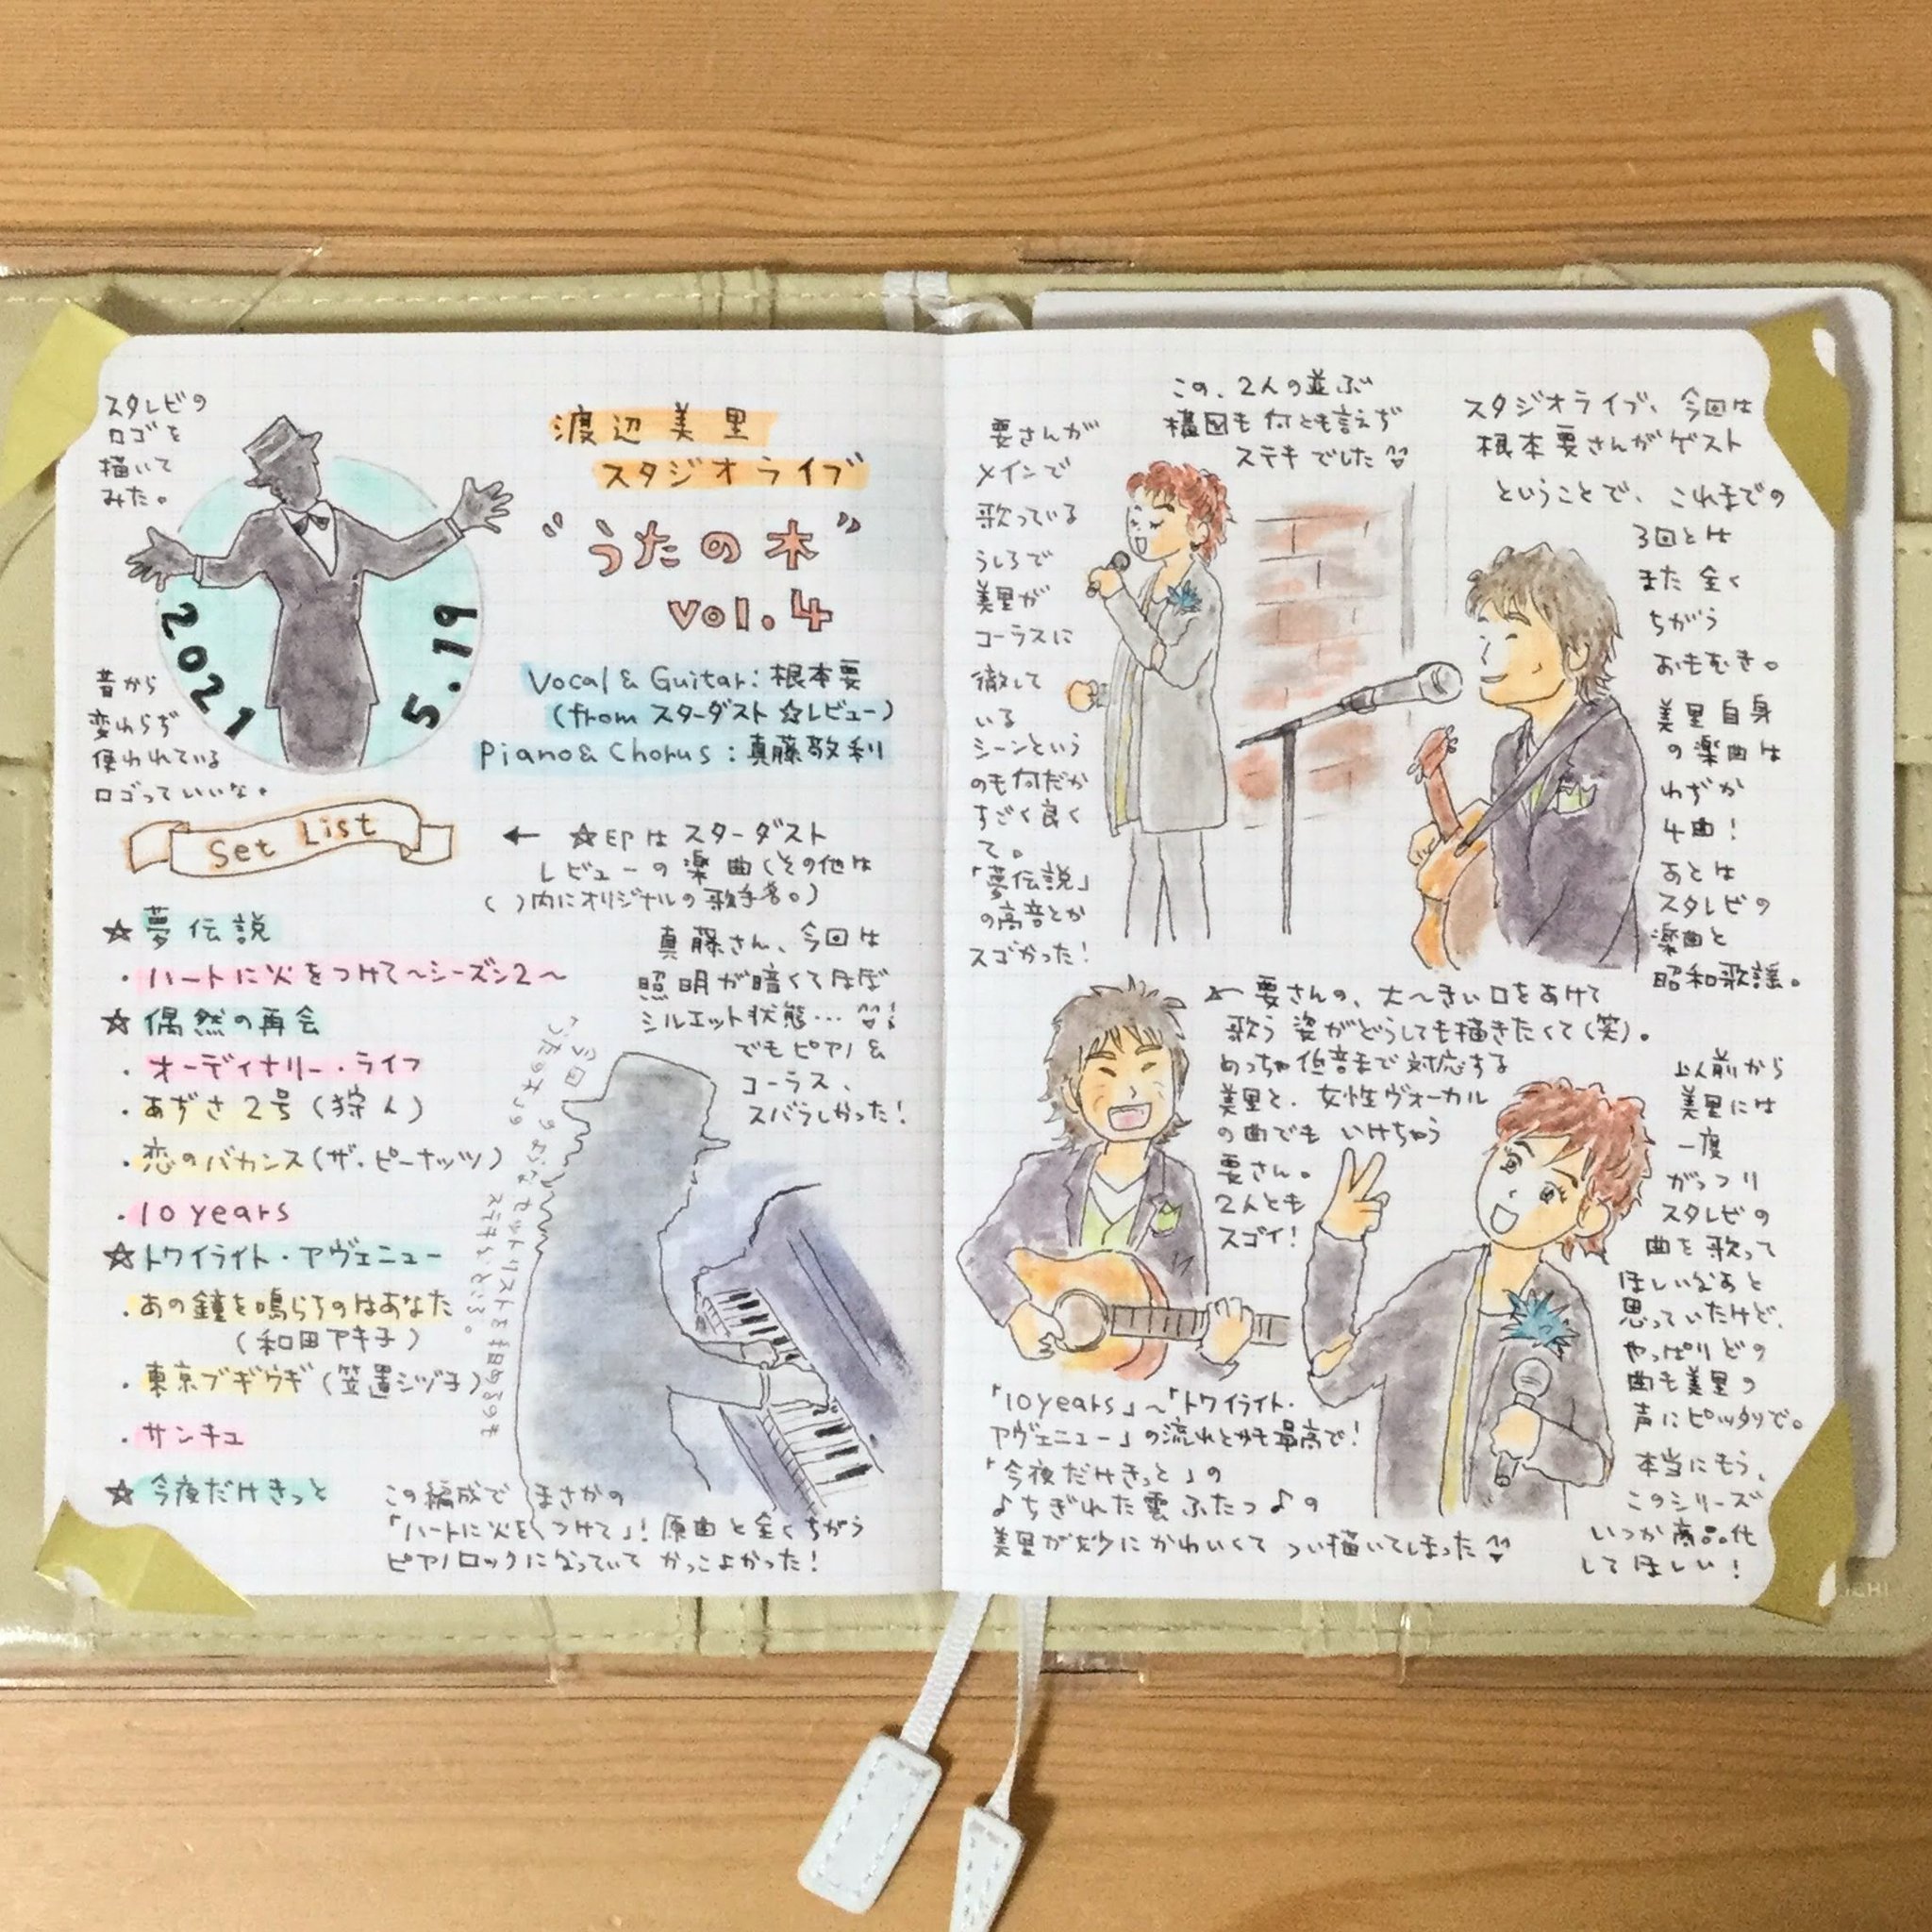 スタレビの
ロゴを
描いて
みた。
2021
5.19
昔から
変わらず
使われている
ロゴっていいな。
渡辺美里
スタジオライブ
"うたの木"
vol.4
Vocal & Guitar:根本要
(from スターダスト☆レビュー)
Piano & Chorus:真藤敬利
Set List
← ☆印はスターダスト
レビューの楽曲(その他は
( )内にオリジナルの歌手名。)
☆夢伝説
・ハートに火をつけて〜シーズン2〜
☆偶然の再会
・オーディナリー・ライフ
・あずさ2号(狩人)
・恋のバカンス(ザ・ピーナッツ)
・10 years
☆トワイライト・アヴェニュー
・あの鐘を鳴らすのはあなた
(和田アキ子)
・東京ブギウギ(笠置シヅ子)
・サンキュ
☆今夜だけきっと
真藤さん、今回は
照明が暗くてほぼ
シルエット状態…
でもピアノ&
コーラス、
スバラしかった!
この編成でまさかの
「ハートに火をつけて」!原曲と全くちがう
ピアノロックになっていてかっこよかった!
要さんが
メインで
歌っている
うしろで
美里が
コーラスに
徹して
いる
シーンという
のも何だか
すごく良く
て。
「夢伝説」
の高音とか
スゴかった!
この、2人の並ぶ
構図も何とも言えず
ステキでした
スタジオライブ、今回は
根本要さんがゲスト
ということで、これまでの
3回とは
また全く
ちがう
おもむき。
美里自身
の楽曲は
わずか
4曲!
あとは
スタレビの
楽曲と
昭和歌謡。
← 要さんの、大〜きい口をあけて
歌う姿がどうしても描きたくて(笑)。
めっちゃ低音まで対応する
美里と、女性ヴォーカル
の曲でもいけちゃう
要さん。
2人とも
スゴイ!
以前から
美里には
一度
がっつり
スタレビの
曲を歌って
ほしいなあと
思っていたけど、
やっぱりどの
曲も美里の
声にピッタリで。
本当にもう、
このシリーズ
いつか商品化
してほしい!
「10 years」〜「トワイライト・
アヴェニュー」の流れとかも最高で!
「今夜だけきっと」の
♪ちぎれた雲ふたつ♪の
美里が妙にかわいくてつい描いてしまった